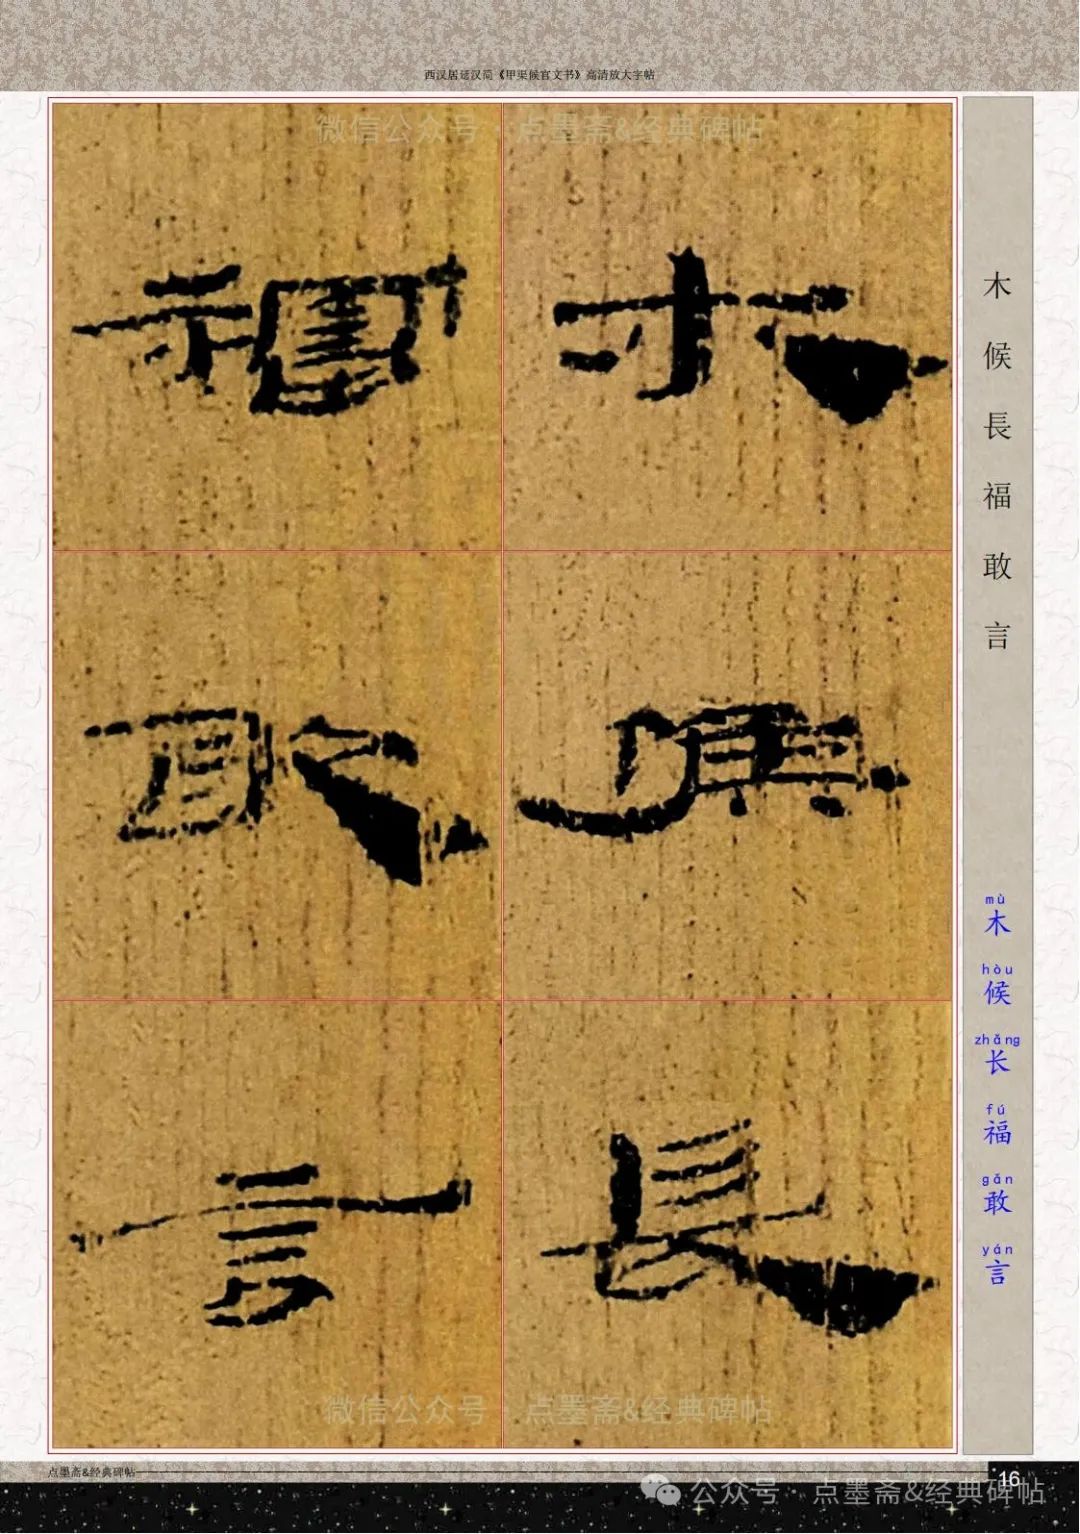 西汉居延汉简《甲渠候官文书》高清放大字帖
微信公众号·点墨斋&经典碑帖
木
候
長
福
敢
言
木候長福敢言
mù hòu zhǎng fú gǎn yán
木候长福敢言
微信公众号·点墨斋&经典碑帖
点墨斋&经典碑帖
16
公众号·点墨斋&经典碑帖